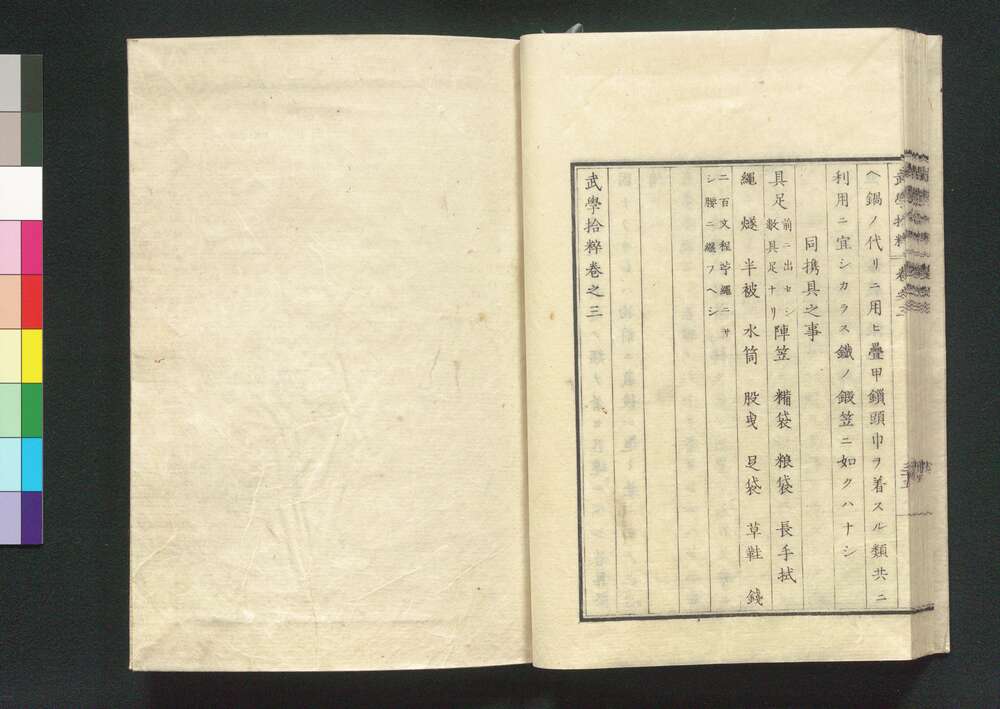 ヘ鍋ノ代リニ用ヒ疊甲鎖頭巾ヲ着スル類共ニ
利用ニ宜シカラス鐵ノ鍛笠ニ如クハナシ
同携具之事
具足
前ニ出セシ
數具足ナリ
陣笠 糒袋 粮袋 長手拭
繩 燧 半被 水筒 股曳 足袋 草鞋 錢
二百文程苧繩ニサ
シ腰ニ纏フヘシ
武學拾粹卷之三